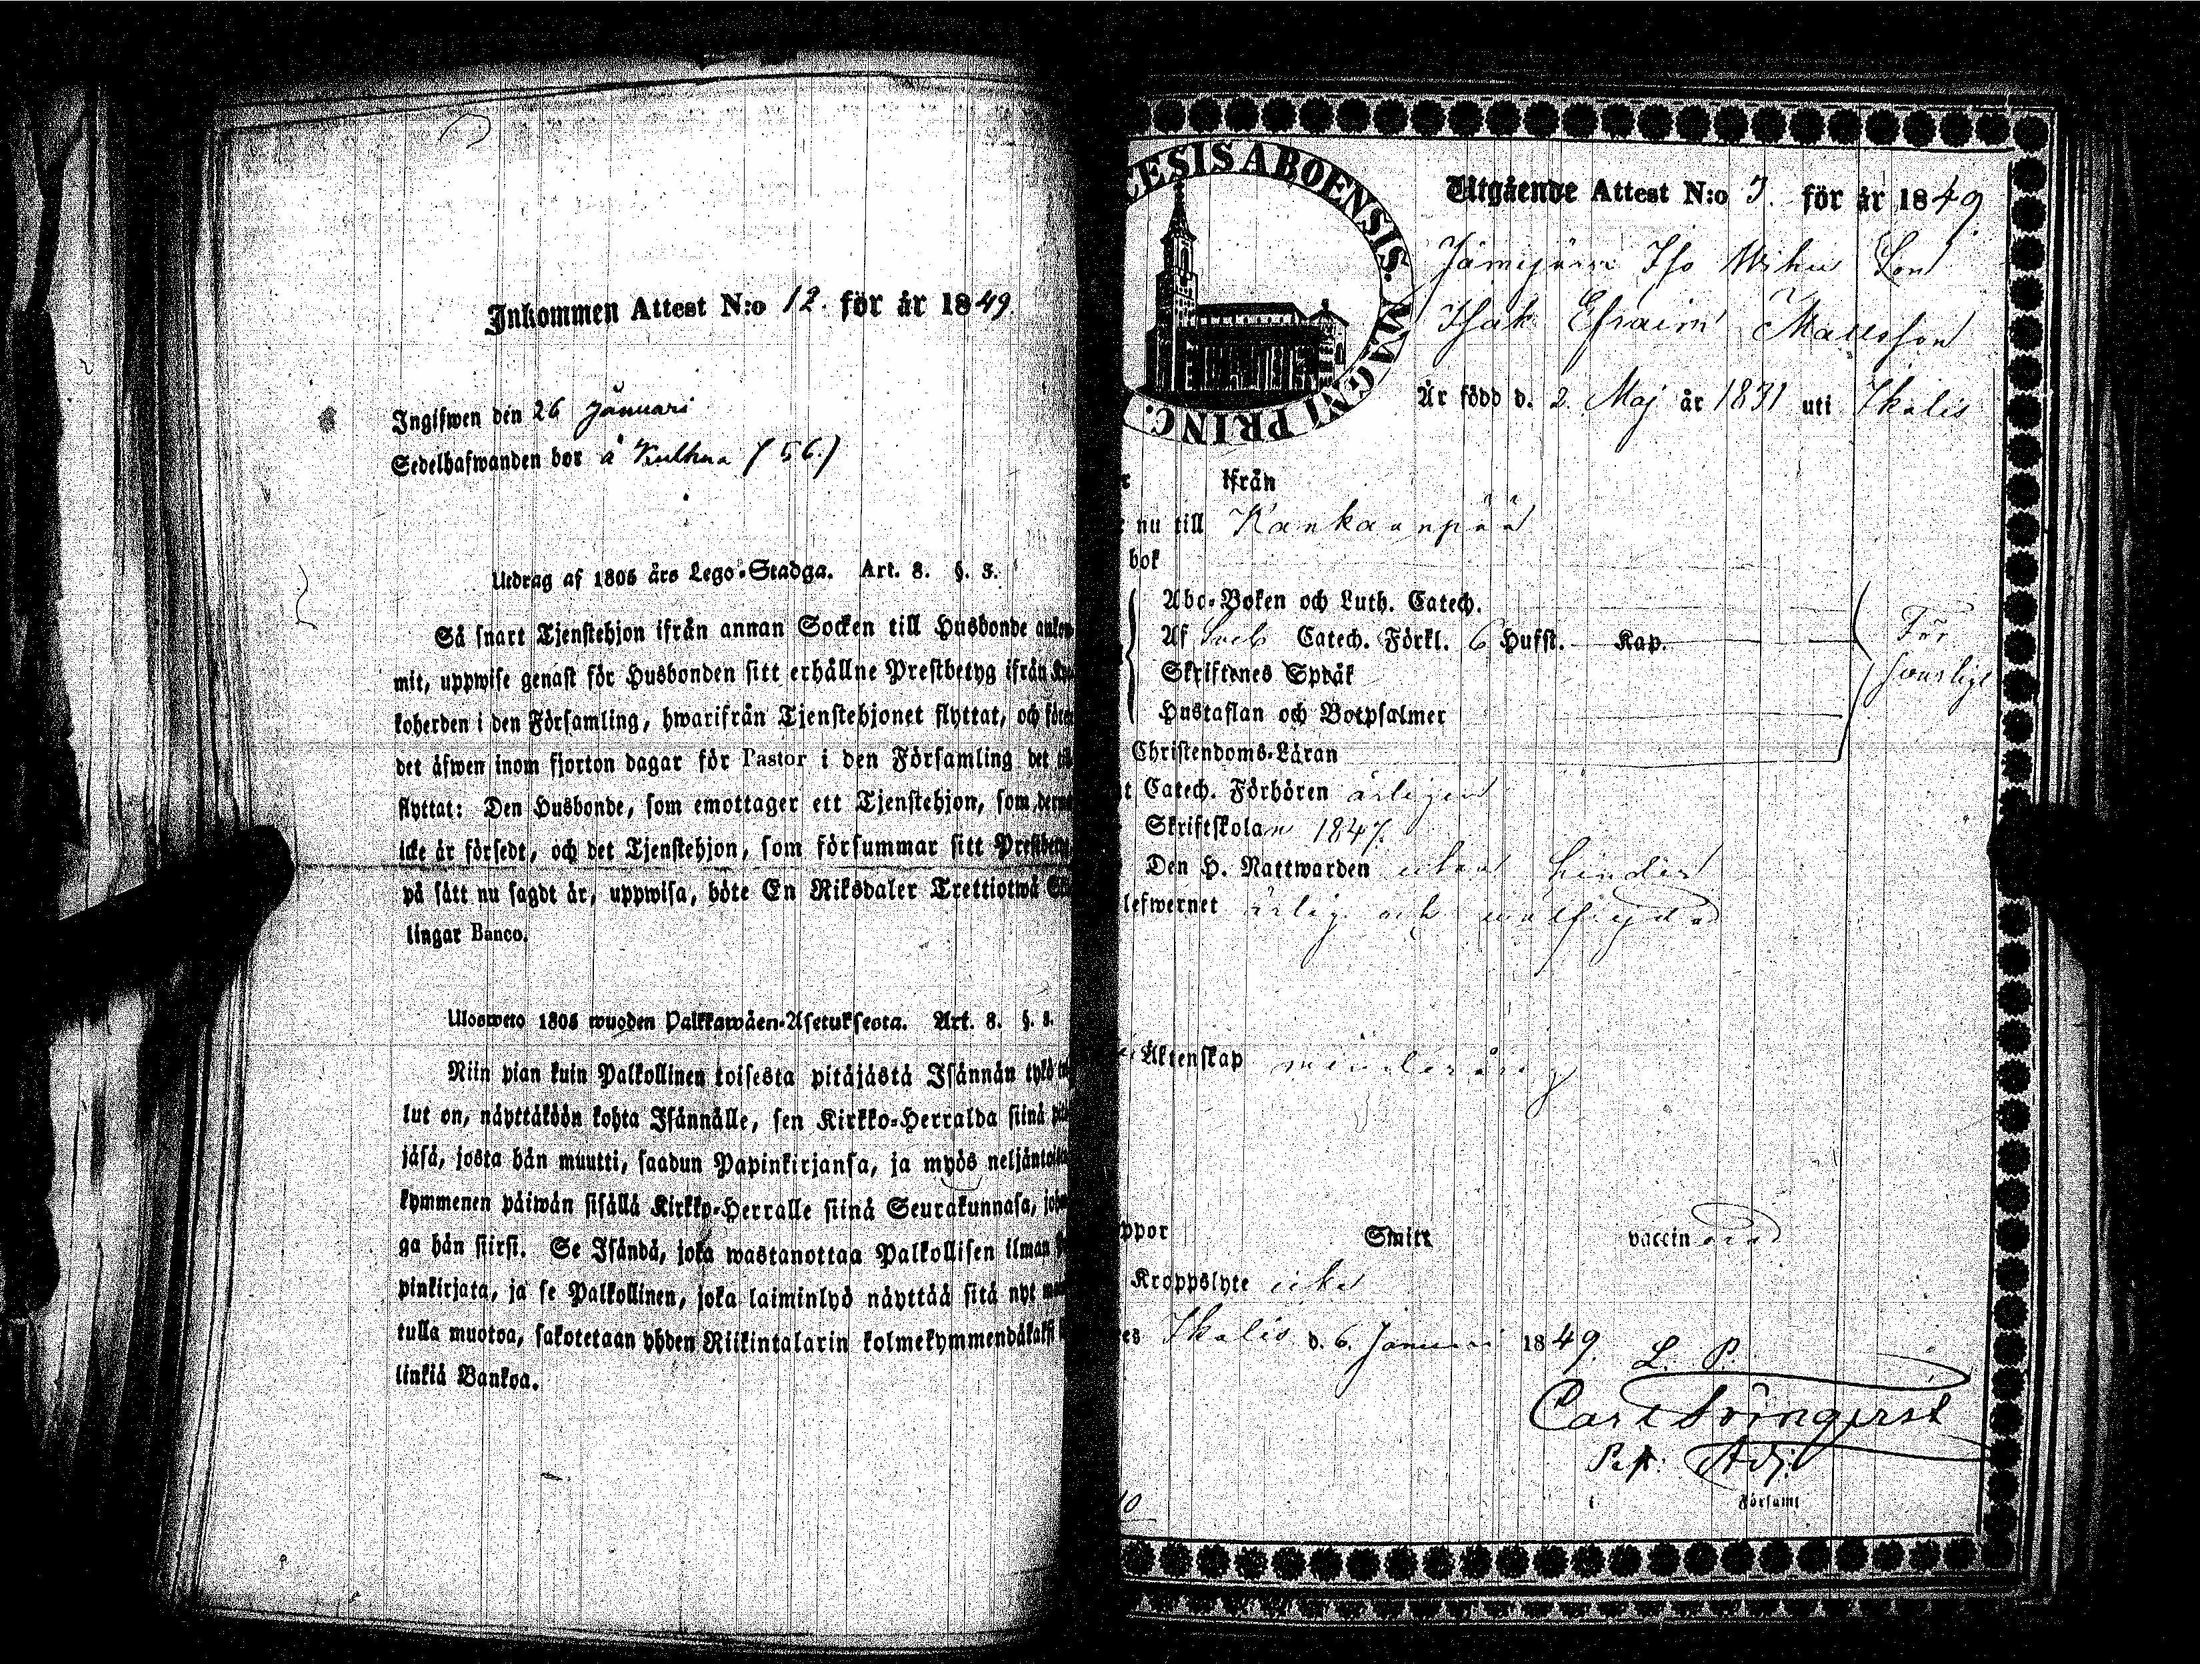 Inkommen Attest N:o 12. för år 1849.
Ingifwen den 26 Januari
Sedelhafwanden bor å (56.)
Utdrag af 1805 års Lego-Stadga. Art. 8. §. 3.
Så snart Tjenstehjon ifrån annan Socken till Husbonde
mit, uppwise genast för Husbonden sitt erhållne Prestbetyg ifrån
koherden i den Församling, hwarifrån Tjenstehjonet flyttat, och
det äfwen inom fjorton dagar för Pastor i den Församling det
flyttat: Den Husbonde, som emottager ett Tjenstehjon, som
icke är försedt, och det Tjenstehjon, som försummar sitt
på sätt nu sagdt är, uppwisa, böte En Riksdaler Trettiotwå
lingar Banco.
Ulosweto 1805 wuoden Palkkawäen-Asetuksesta. Art. 8. §. 3.
Niin pian kuin Palkollinen toisesta pitäjästä Isännän tykö
lut on, näyttäköön kohta Isännälle, sen Kirkko-Herralda siinä
jäsä, josta hän muutti, saadun Papinkirjansa, ja myös
kymmenen päiwän sisällä Kirkko-Herralle siinä Seurakunnasa,
ga hän siirsi. Se Isändä, joka wastanottaa Palkollisen ilman
pinkirjata, ja se Palkollinen, joka laiminlyö näyttää sitä nyt
tulla muotoa, sakotetaan yhden Riikintalarin
linkiä Bankoa.
CESIS ABOENSIS. MAGNI PRINC.
Utgående Attest N:o 3. för år 1849
Jämijärvi Iso Wihu Son
Isak Efraim Mattsson
Är född d. 2. Maj år 1831 uti Ikalis
ifrån
nu till Kankaanpää
bok
Abc-Boken och Luth. Catech.
Af Sveb Catech. Förkl. 6 Hufst. Kap.
Skriftenes Språk
Hustaflan och Botpsalmer
Försvarligt
Christendoms-Läran
Catech. Förhören årligen
Skriftskolan 1847.
Den H. Nattwarden utan hinder
lefwernet ärlig och wälfrejdad
Äktenskap minderårig
ppor Smitt vaccinerad
Kroppslyte utan
Ikalis d. 6. Januari 1849.
L. P.
Carl
Past. Adj.
i Församl